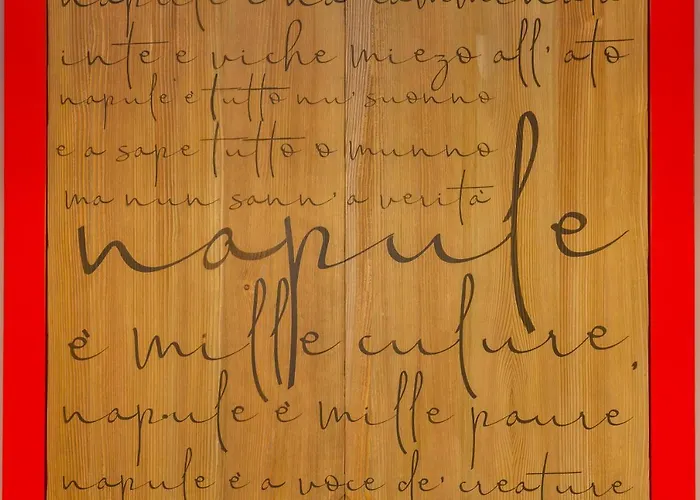 napule è na camminata
inte e viche miezo all'ato
napule è tutto nu' suonno
e a sape tutto o munno
ma nun sann' a verità
napule
è mille culure.
napule è mille paure
napule è a voce de' creature